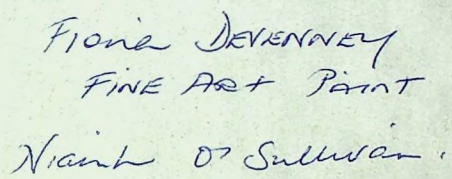 Fiona DEVENNEY
FINE ART PAINT
Niamh O'Sullivan.